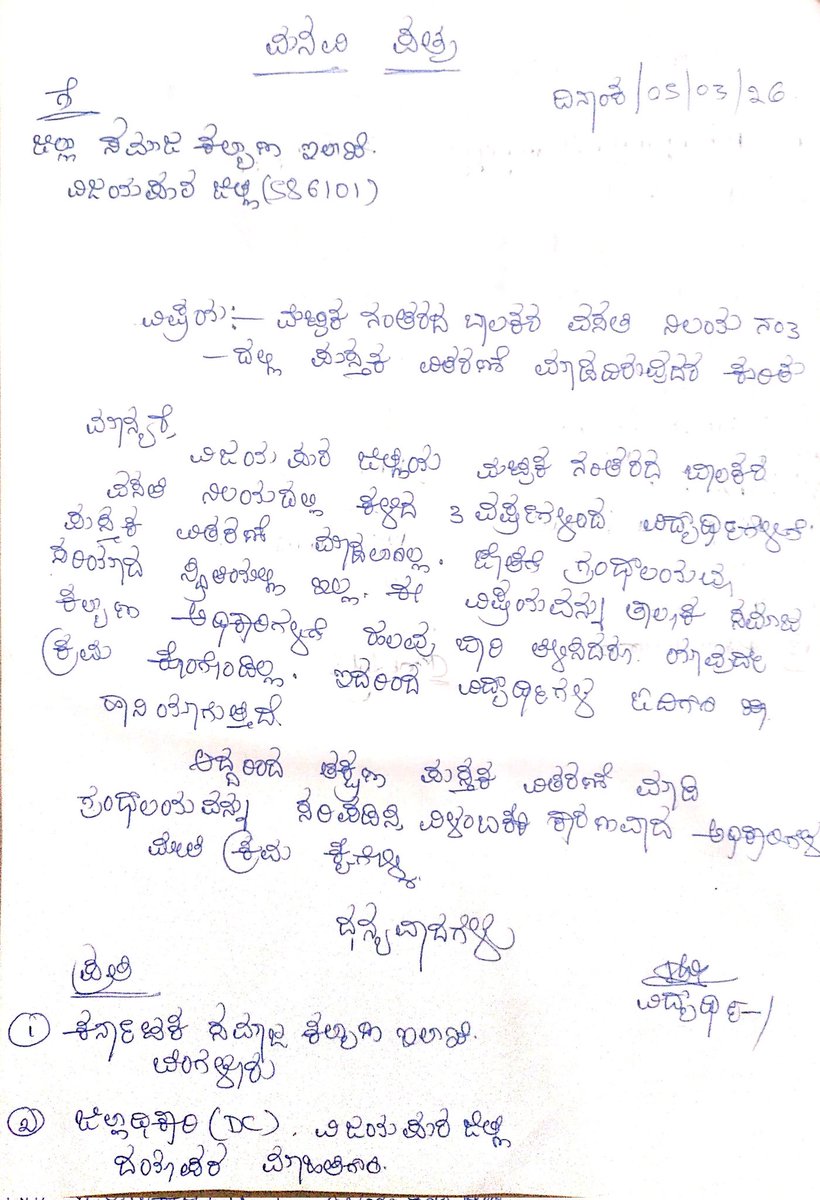 ಮನವಿ ಪತ್ರ
ದಿನಾಂಕ/05/03/26
ಗೆ
ಜಿಲ್ಲಾ ಸಮಾಜ ಕಲ್ಯಾಣ ಇಲಾಖೆ.
ವಿಜಯಪುರ ಜಿಲ್ಲೆ (586101)
ವಿಷಯ:- ಮೆಟ್ರಿಕ ನಂತರದ ಬಾಲಕರ ವಸತಿ ನಿಲಯ ನಂ3
-ದಲ್ಲಿ ಪುಸ್ತಕ ವಿತರಣೆ ಮಾಡದಿರುವುದರ ಕುರಿತು
ಮಾನ್ಯರೆ,
ವಿಜಯಪುರ ಜಿಲ್ಲೆಯ ಮೆಟ್ರಿಕ ನಂತರದ ಬಾಲಕರ
ವಸತಿ ನಿಲಯದಲ್ಲಿ ಕಳೆದ 3 ವರ್ಷಗಳಿಂದ ವಿದ್ಯಾರ್ಥಿಗಳಿಗೆ
ಪುಸ್ತಕ ವಿತರಣೆ ಮಾಡಲಾಗಿಲ್ಲ. ಜೊತೆಗೆ ಗ್ರಂಥಾಲಯವು
ಸರಿಯಾದ ಸ್ಥಿತಿಯಲ್ಲಿ ಇಲ್ಲ. ಈ ವಿಷಯವನ್ನು ತಾಲ್ಲೂಕ ಸಮಾಜ
ಕಲ್ಯಾಣ ಅಧಿಕಾರಿಗಳಿಗೆ ಹಲವು ಬಾರಿ ತಿಳಿಸಿದರೂ ಯಾವುದೇ
ಕ್ರಮ ಕೈಗೊಂಡಿಲ್ಲ. ಇದರಿಂದ ವಿದ್ಯಾರ್ಥಿಗಳ ಓದಿಗೂ
ಹಾನಿಯಾಗುತ್ತಿದೆ.
ಆದ್ದರಿಂದ ತಕ್ಷಣ ಪುಸ್ತಕ ವಿತರಣೆ ಮಾಡಿ
ಗ್ರಂಥಾಲಯವನ್ನು ಸರಿಪಡಿಸಿ, ವಿಳಂಬಕ್ಕೆ ಕಾರಣವಾದ ಅಧಿಕಾರಿಗಳ
ಮೇಲೆ ಕ್ರಮ ಕೈಗೊಳ್ಳಿ.
ಧನ್ಯವಾದಗಳು
ವಿದ್ಯಾರ್ಥಿ
ಪ್ರತಿ
1 ಕರ್ನಾಟಕ ಸಮಾಜ ಕಲ್ಯಾಣ ಇಲಾಖೆ.
ಬೆಂಗಳೂರು
2 ಜಿಲ್ಲಾಧಿಕಾರಿ (DC). ವಿಜಯಪುರ ಜಿಲ್ಲೆ
ದಯಾಪರ ಮಾಹಿತಿಗಾಗಿ.